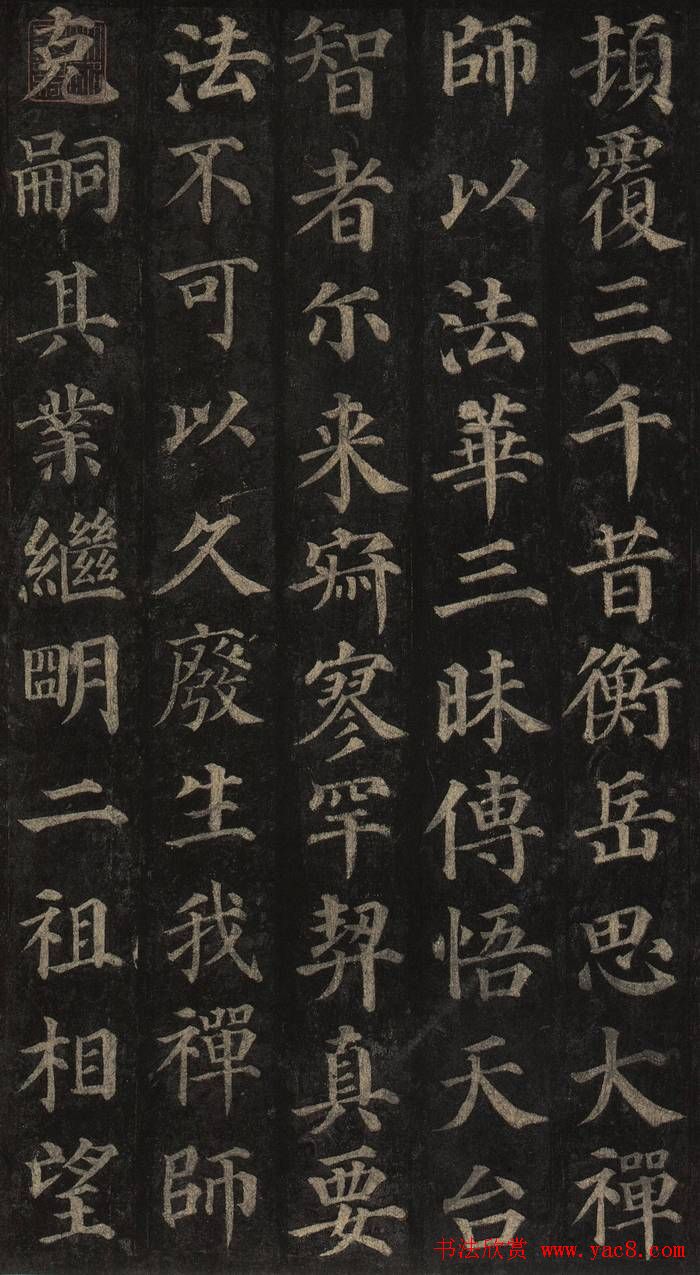 頂覆三千昔衡岳思大禪
師以法華三昧傳悟天台
智者尔来寂寥罕契真要
法不可以久廢生我禪師
克嗣其業繼明二祖相望
书法欣赏 www.yac8.com